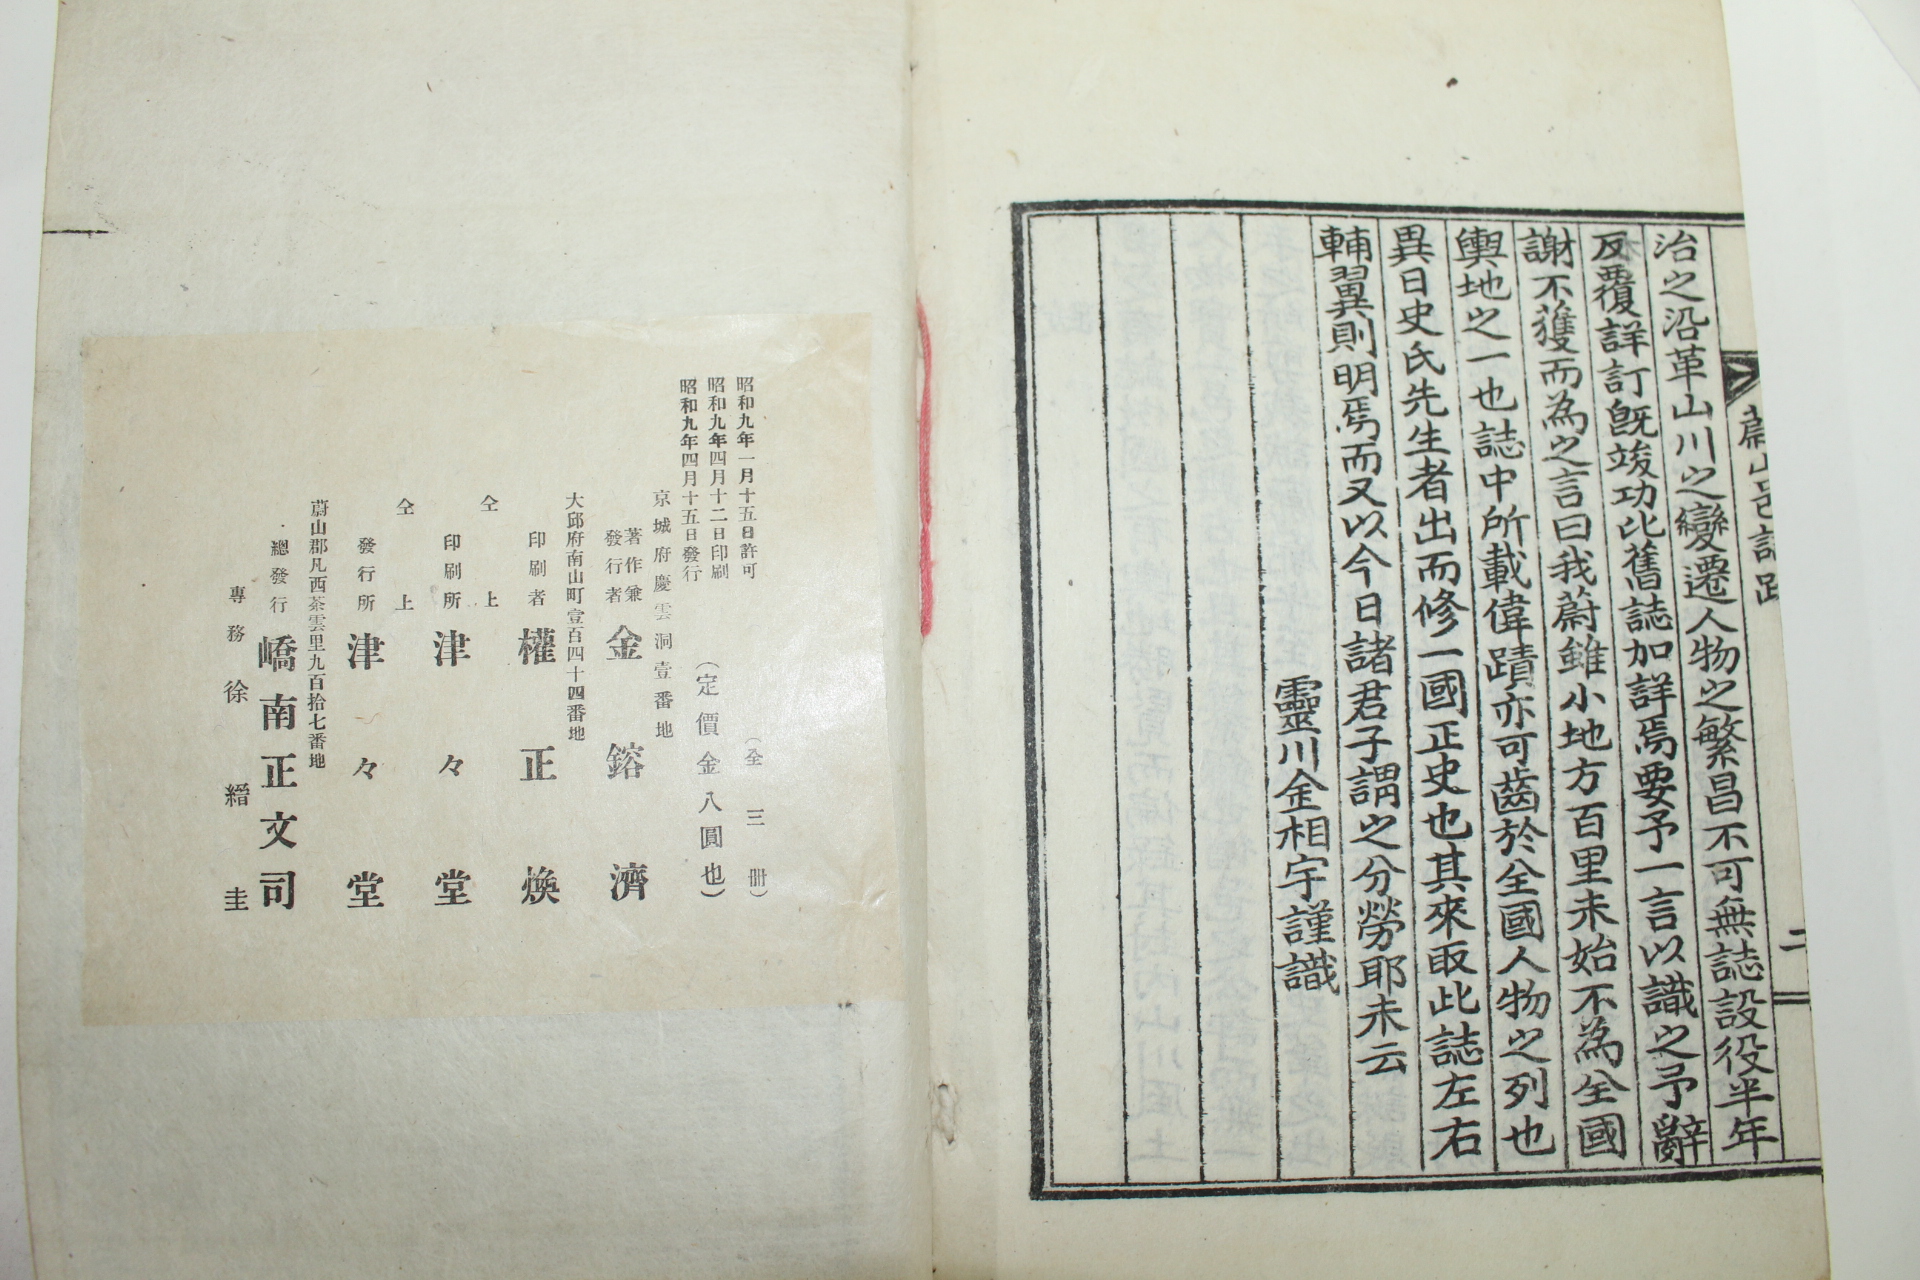 蔚山邑誌跋
二
治之沿革山川之變遷人物之繁昌不可無誌設役半年
反覆詳訂旣竣功比舊誌加詳焉要予一言以識之予辭
謝不獲而為之言曰我蔚雖小地方百里未始不為全國
輿地之一也誌中所載偉蹟亦可齒於全國人物之列也
異日史氏先生者出而修一國正史也其來取此誌左右
輔翼則明焉而又以今日諸君子謂之分勞耶未云
靈川金相宇謹識
昭和九年一月十五日許可
(全三冊)
昭和九年四月十二日印刷
昭和九年四月十五日發行
(定價金八圓也)
京城府慶雲洞壹番地
著作兼發行者 金鎔濟
大邱府南山町壹百四十四番地
印刷者 權正煥
仝上
印刷所 津々堂
仝上
發行所 津々堂
蔚山郡凡西茶雲里九百拾七番地
總發行 嶠南正文司
專務 徐縉圭